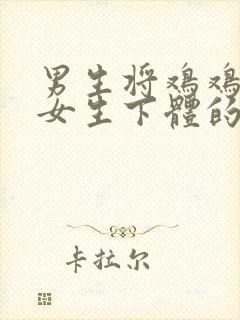 男生将鸡鸡
女生下體的
卡拉尔